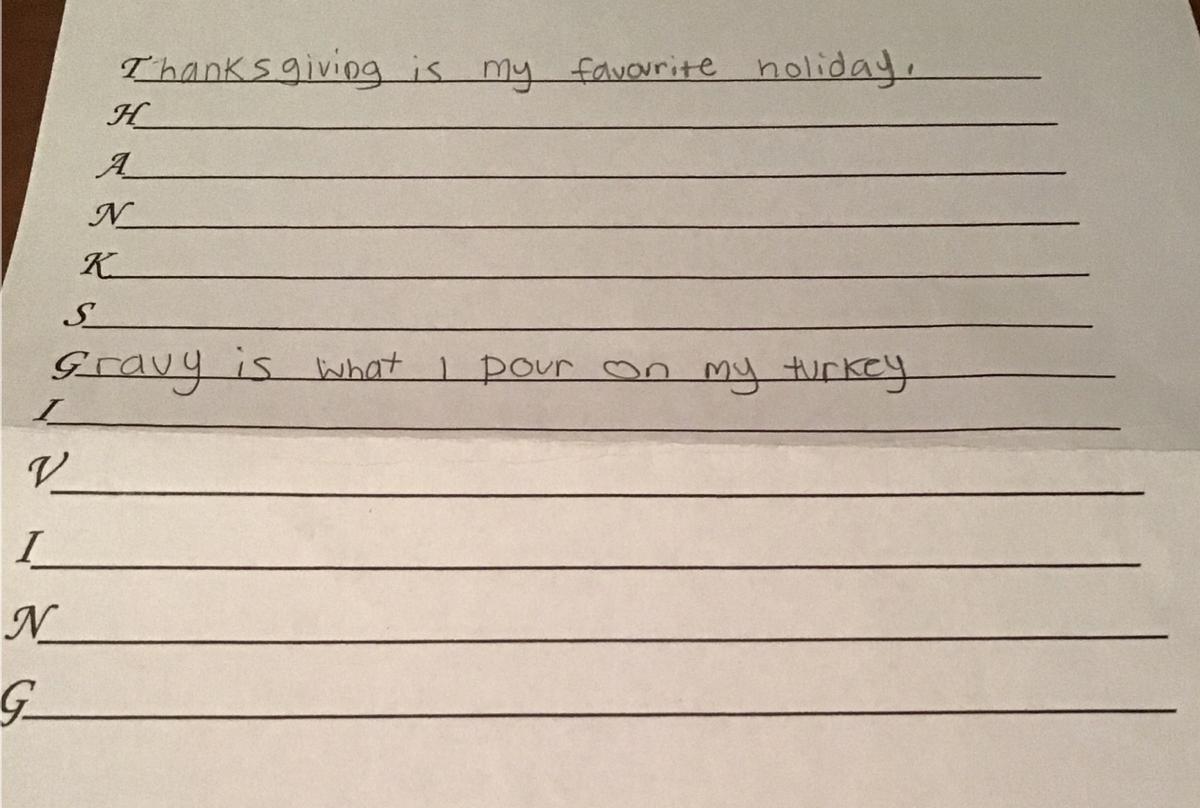 Thanksgiving is my favourite holiday.
H
A
N
K
S
Gravy is what I pour on my turkey
I
V
I
N
G